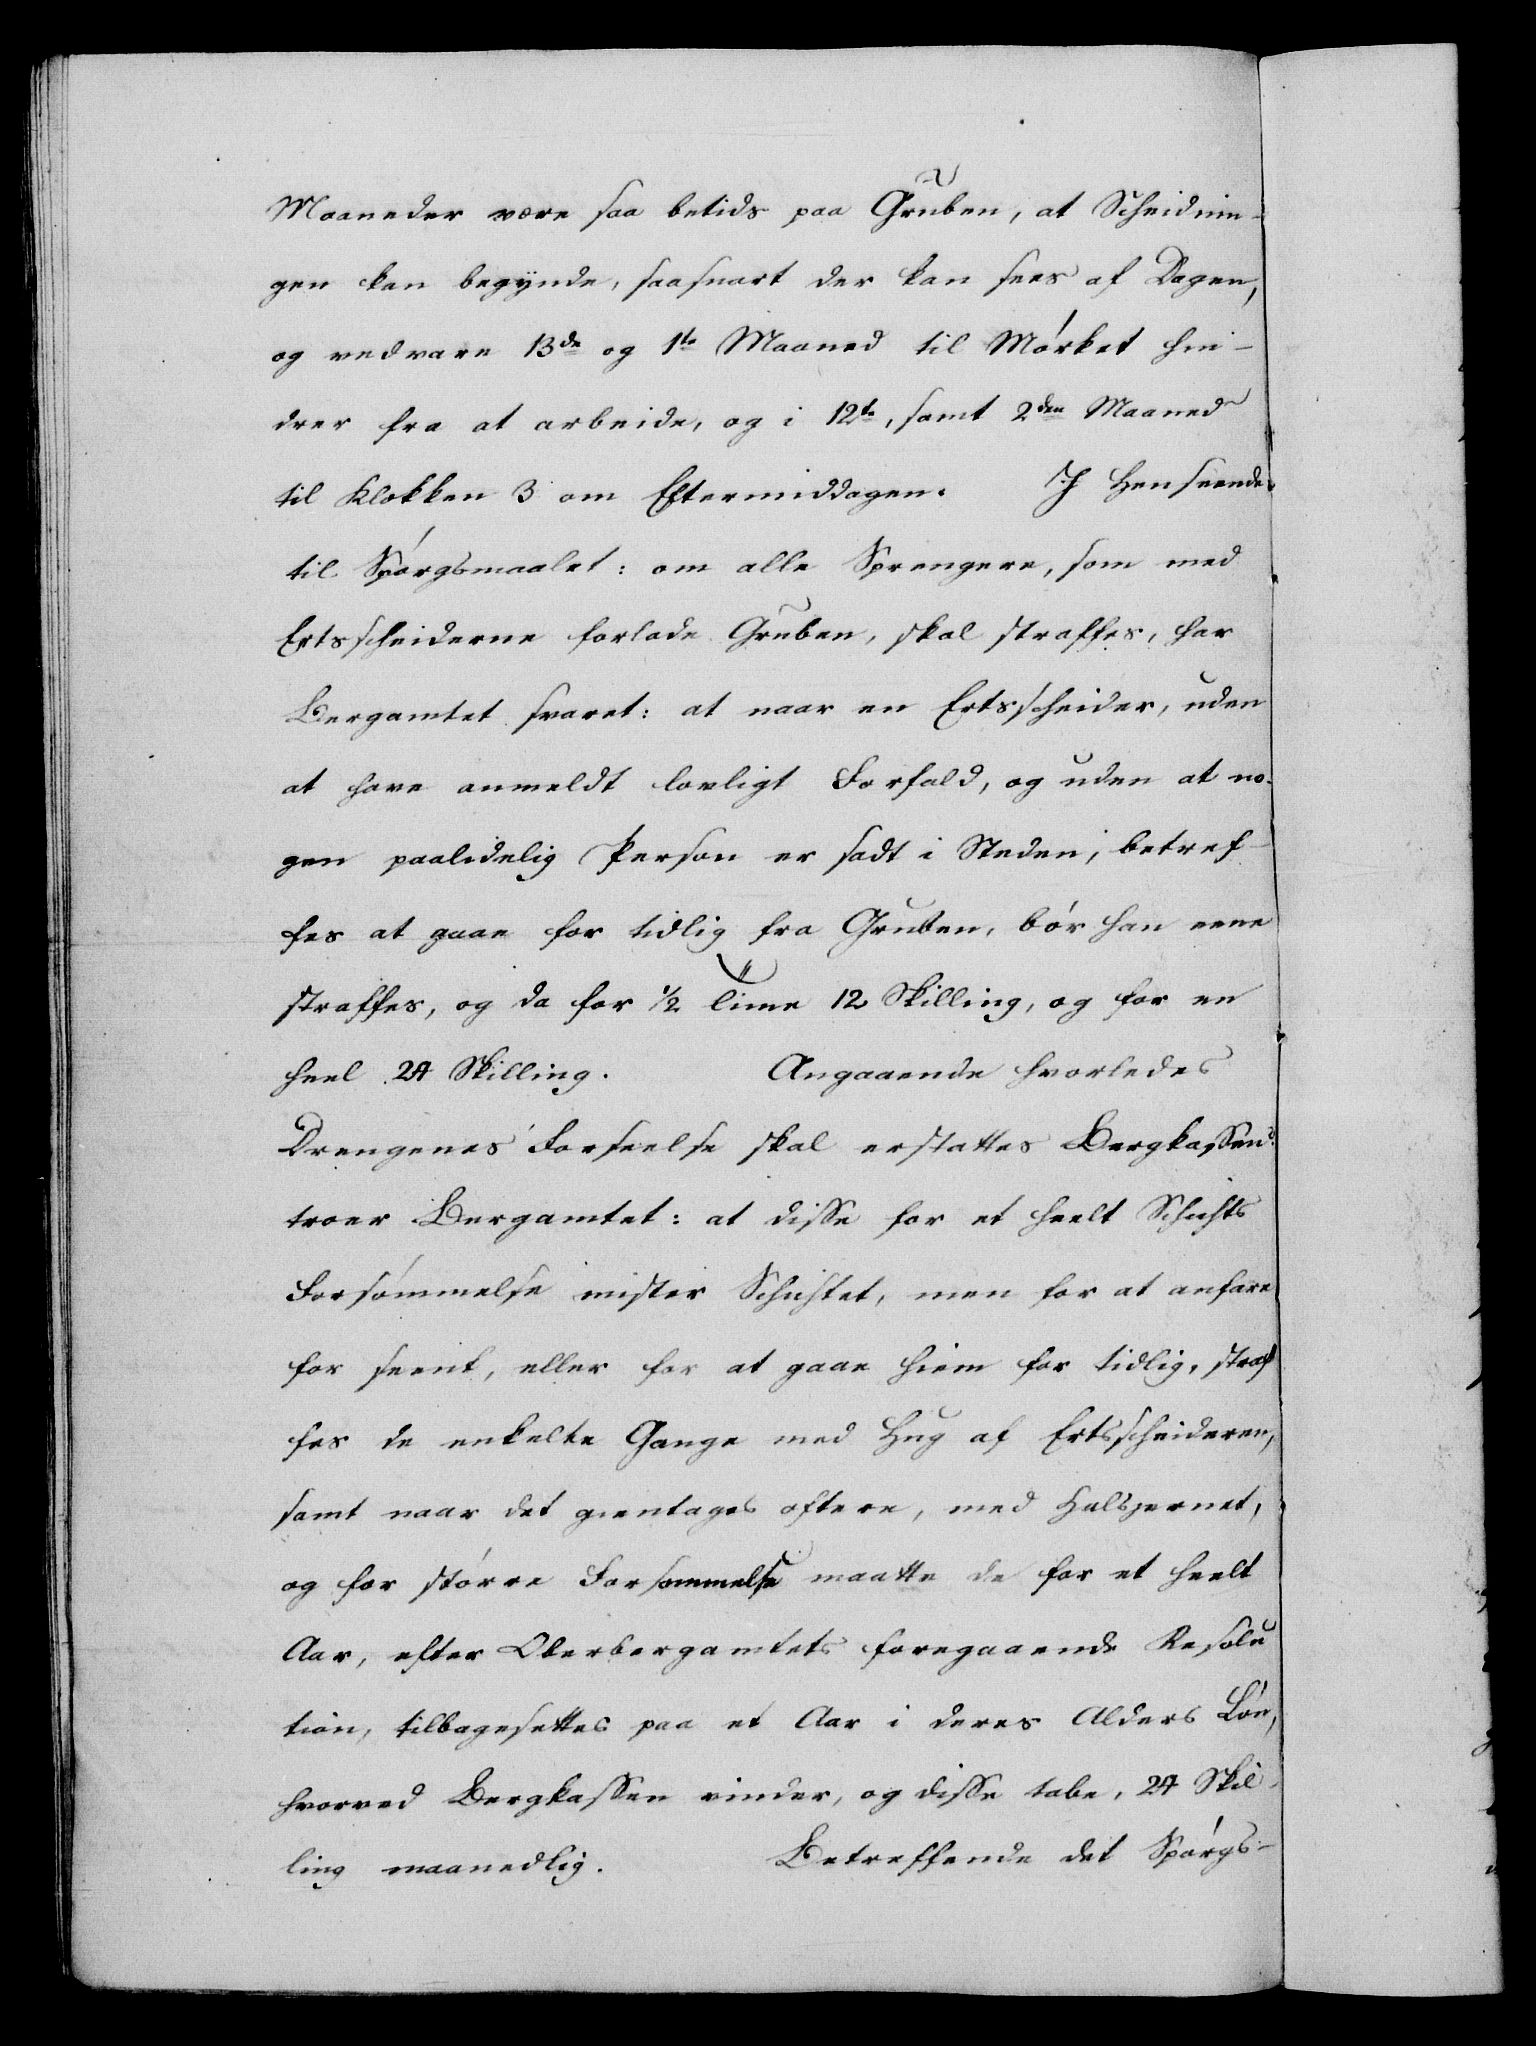 Maaneder være saa betids paa Gruben, at Scheidnin-
gen kan begynde, saasnart der kan sees af Dagen,
og vedvare 13de og 1te Maaned til Mørket hin-
drer fra at arbeide, og i 12te, samt 2den Maaned
til Klokken 3 om Eftermiddagen. I Henseende
til Spørgsmaalet: om alle Sprengere, som med
Ertsscheiderne forlade Gruben, skal straffes, har
Bergamtet svaret: at naar en Ertsscheider, uden
at have anmeldt lovligt Forfald, og uden at no-
gen paalidelig Person er sadt i Steden, betref-
fes at gaae for tidlig fra Gruben, bør han eene
straffes, og da for 1/2 Time 12 Skilling, og for en
heel 24 Skilling. Angaaende hvorledes
Drengenes Forseelse skal erstattes Bergkassen:
troer Bergamtet: at disse for et heelt Schichts
Forsømmelse mister Schichtet, men for at anfare
for seent, eller for at gaae hiem for tidlig, straf
fes de enkelte Gange med Hug af Ertsscheideren,
samt naar det gientages oftere, med Halsjernet,
og for større Forsømmelse maatte de for et heelt
Aar, efter Oberbergamtets foregaaende Resolu
tion, tilbagesettes paa et Aar i deres Alders Løn,
hvorved Bergkassen vinder, og disse tabe, 24 Skil-
ling maanedlig. Betreffende det Spørgs-